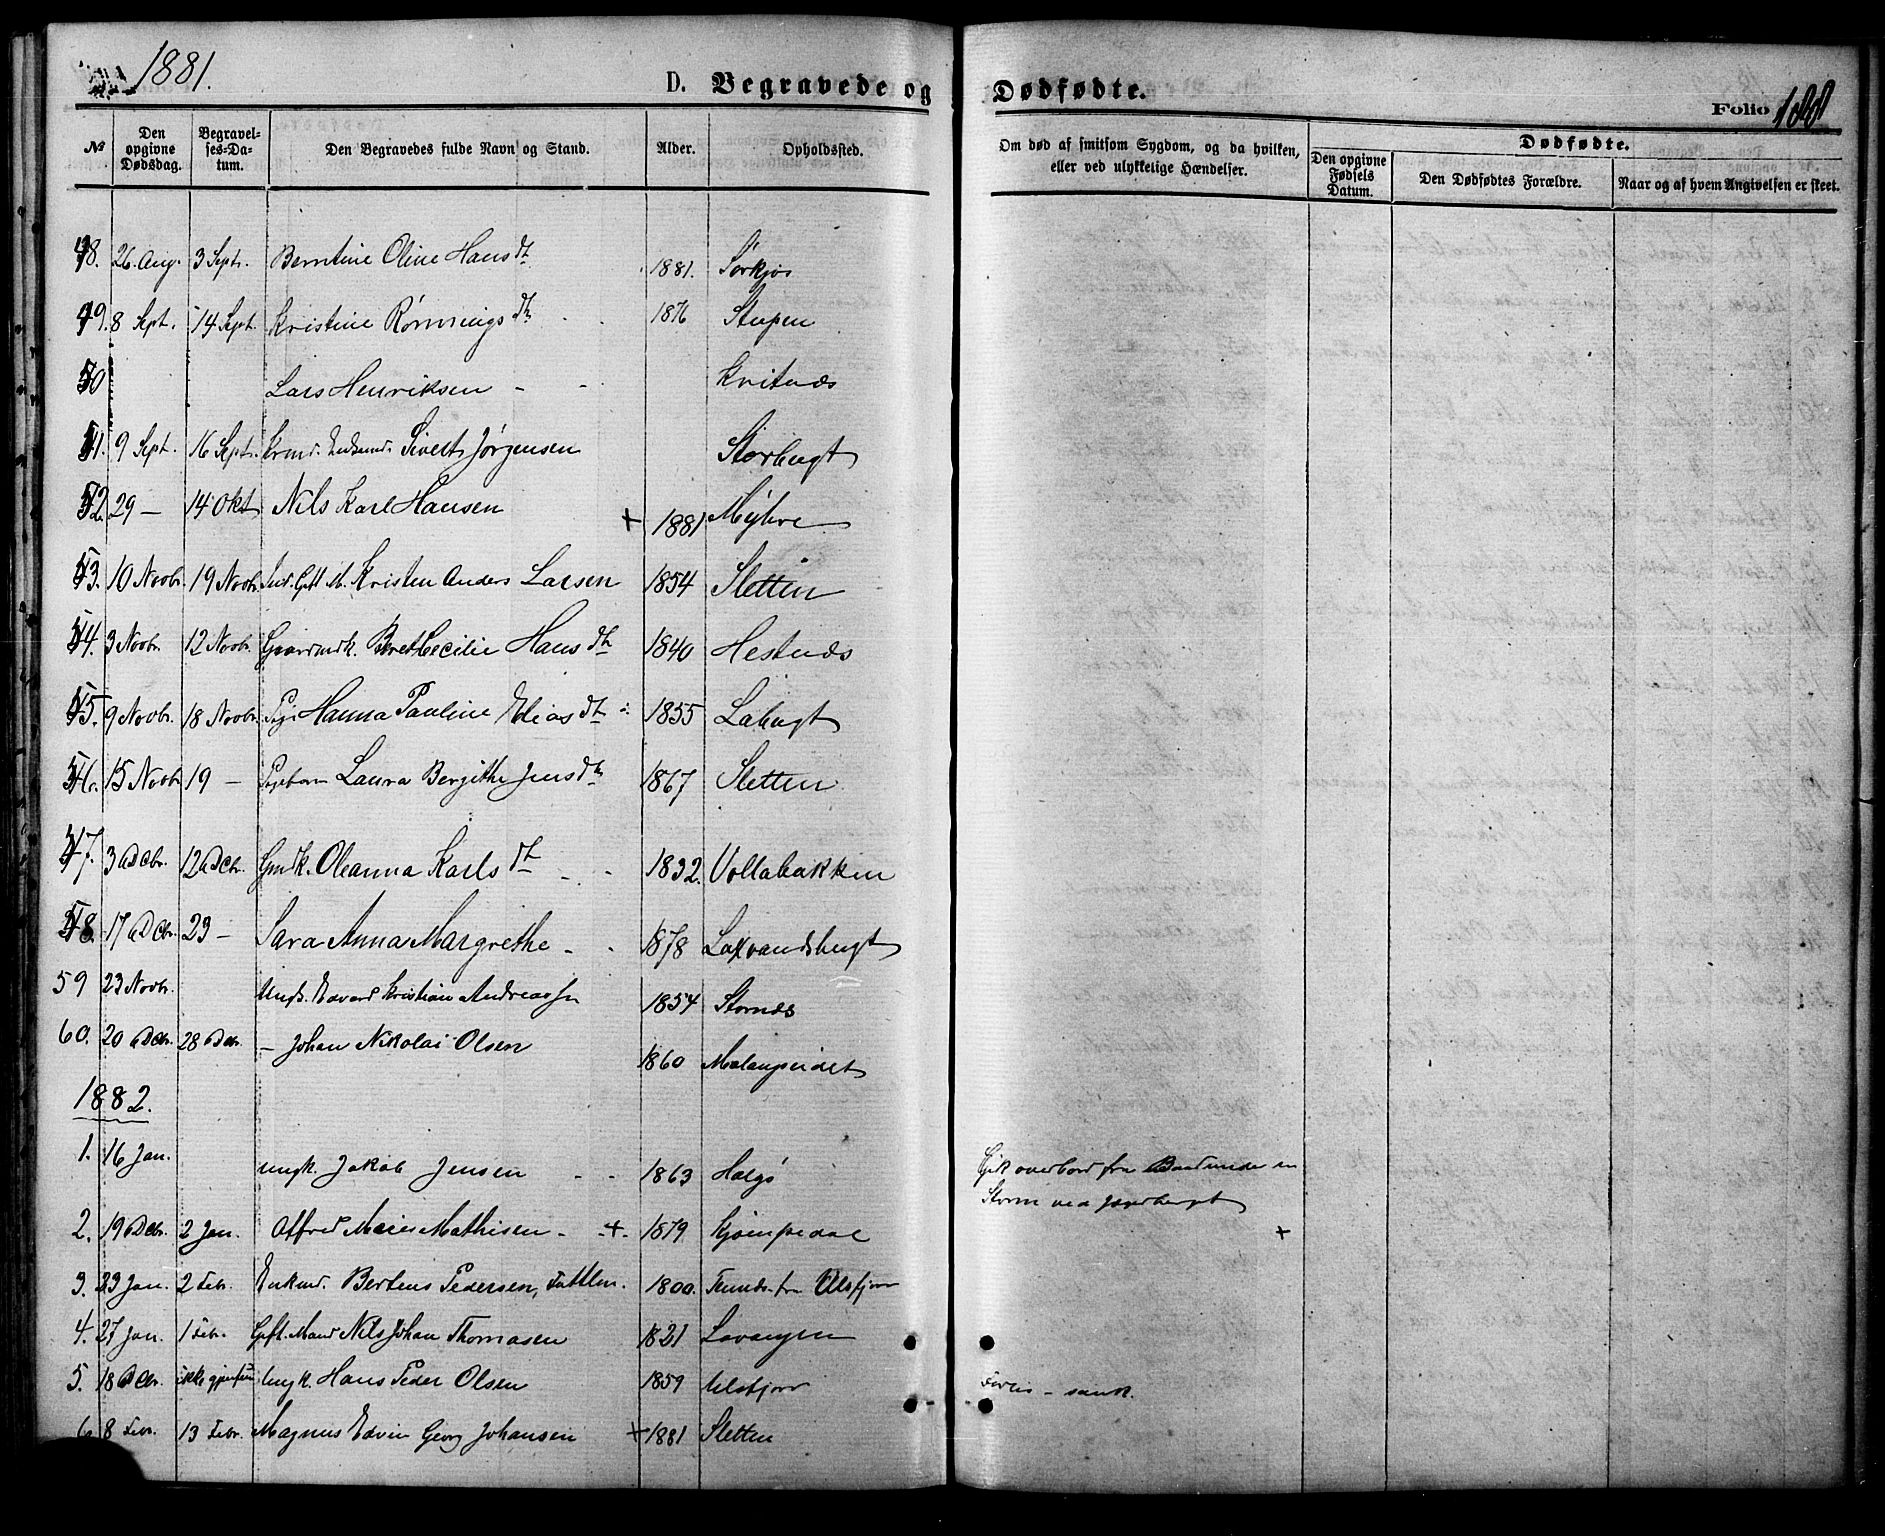 1881.
D. Begravede og Dødfødte.
Folio 188
№ Den opgivne Dødsdag. Begravelses-Datum. Den Begravedes fulde Navn og Stand. Alder. Opholdssted. Om død af smitsom Sygdom, og da hvilken, eller ved ulykkelige Hændelser. Dødfødte. Den opgivne Fødsels Datum. Den Dødfødtes Forældre. Naar og af hvem Angivelsen er skeet.
48. 26. Aug. 3 Sept. Berntine Oline Hansdt 1881. Sørkjos
49. 8 Sept. 14 Sept. Kristine Rønningsdt 1876 Stupen
50 Lars Henriksen - Kvitnæs
51. 9 Sept. 16 Sept. Sivert Jørgensen Storbugt
52. 29 - 14 Okt Nils Karl Hansen + 1881 Myhre
53. 10 Novbr. 19 Novbr. Ind. Gft M. Kristen Anders Larsen 1854 Sletten
54. 3 Novbr. 12 Novbr. Gaardmdk. Beret Cecilie Hansdt 1840 Hestnæs
55. 9 Novbr. 18 Novbr. Pige Hanna Pauline Eliasdt 1855 Labugt
56. 15 Novbr 19 - Pigebarn Laura Bergithe Jensdt 1867 Sletten
57. 3 Dcbr. 12 Dcbr. Gmdk. Oleanna Karlsdt 1832. Vollabakken
58. 17 Dcbr. 23 - Sara Anna Margrethe - 1878 Laxvandsbugt
59 23 Novbr. Ungk. Edvard Kristian Andreassn 1854 Stornæs
60. 20 Dcbr. 28 Dcbr. - Johan Nikolai Olsen 1860 Malangseidet
1882.
1. 16 Jan. Ungk. Jakob Jensen 1863 Holsø Gik overbord fra Baad under en
Storm ved
2. 19 Dcbr. 2 Jan. Alfred Meier Mathisen - + 1879 Kjempedal +
3. 23 Jan. 2 Febr. Enkmd. Bertens Pedersen, Fattlm. 1800. fra Ulsfjor
4. 27 Jan. 1 Febr. Gift. Mand Nils Johan Thomasen 1821 Lavangen
5. 18 Dcbr. ikke Ungk. Hans Peder Olsen 1859 Ulsfjor Forlis - sank.
6. 8 Febr. 13 Febr. Magnus Edvin Georg Johansen + 1881 Sletten